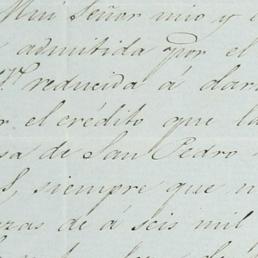 Mui Señor mio y
admitida por el
reducida á dar
el crédito que la
sa de San Pedro
S, siempre que
zas de á seis mil